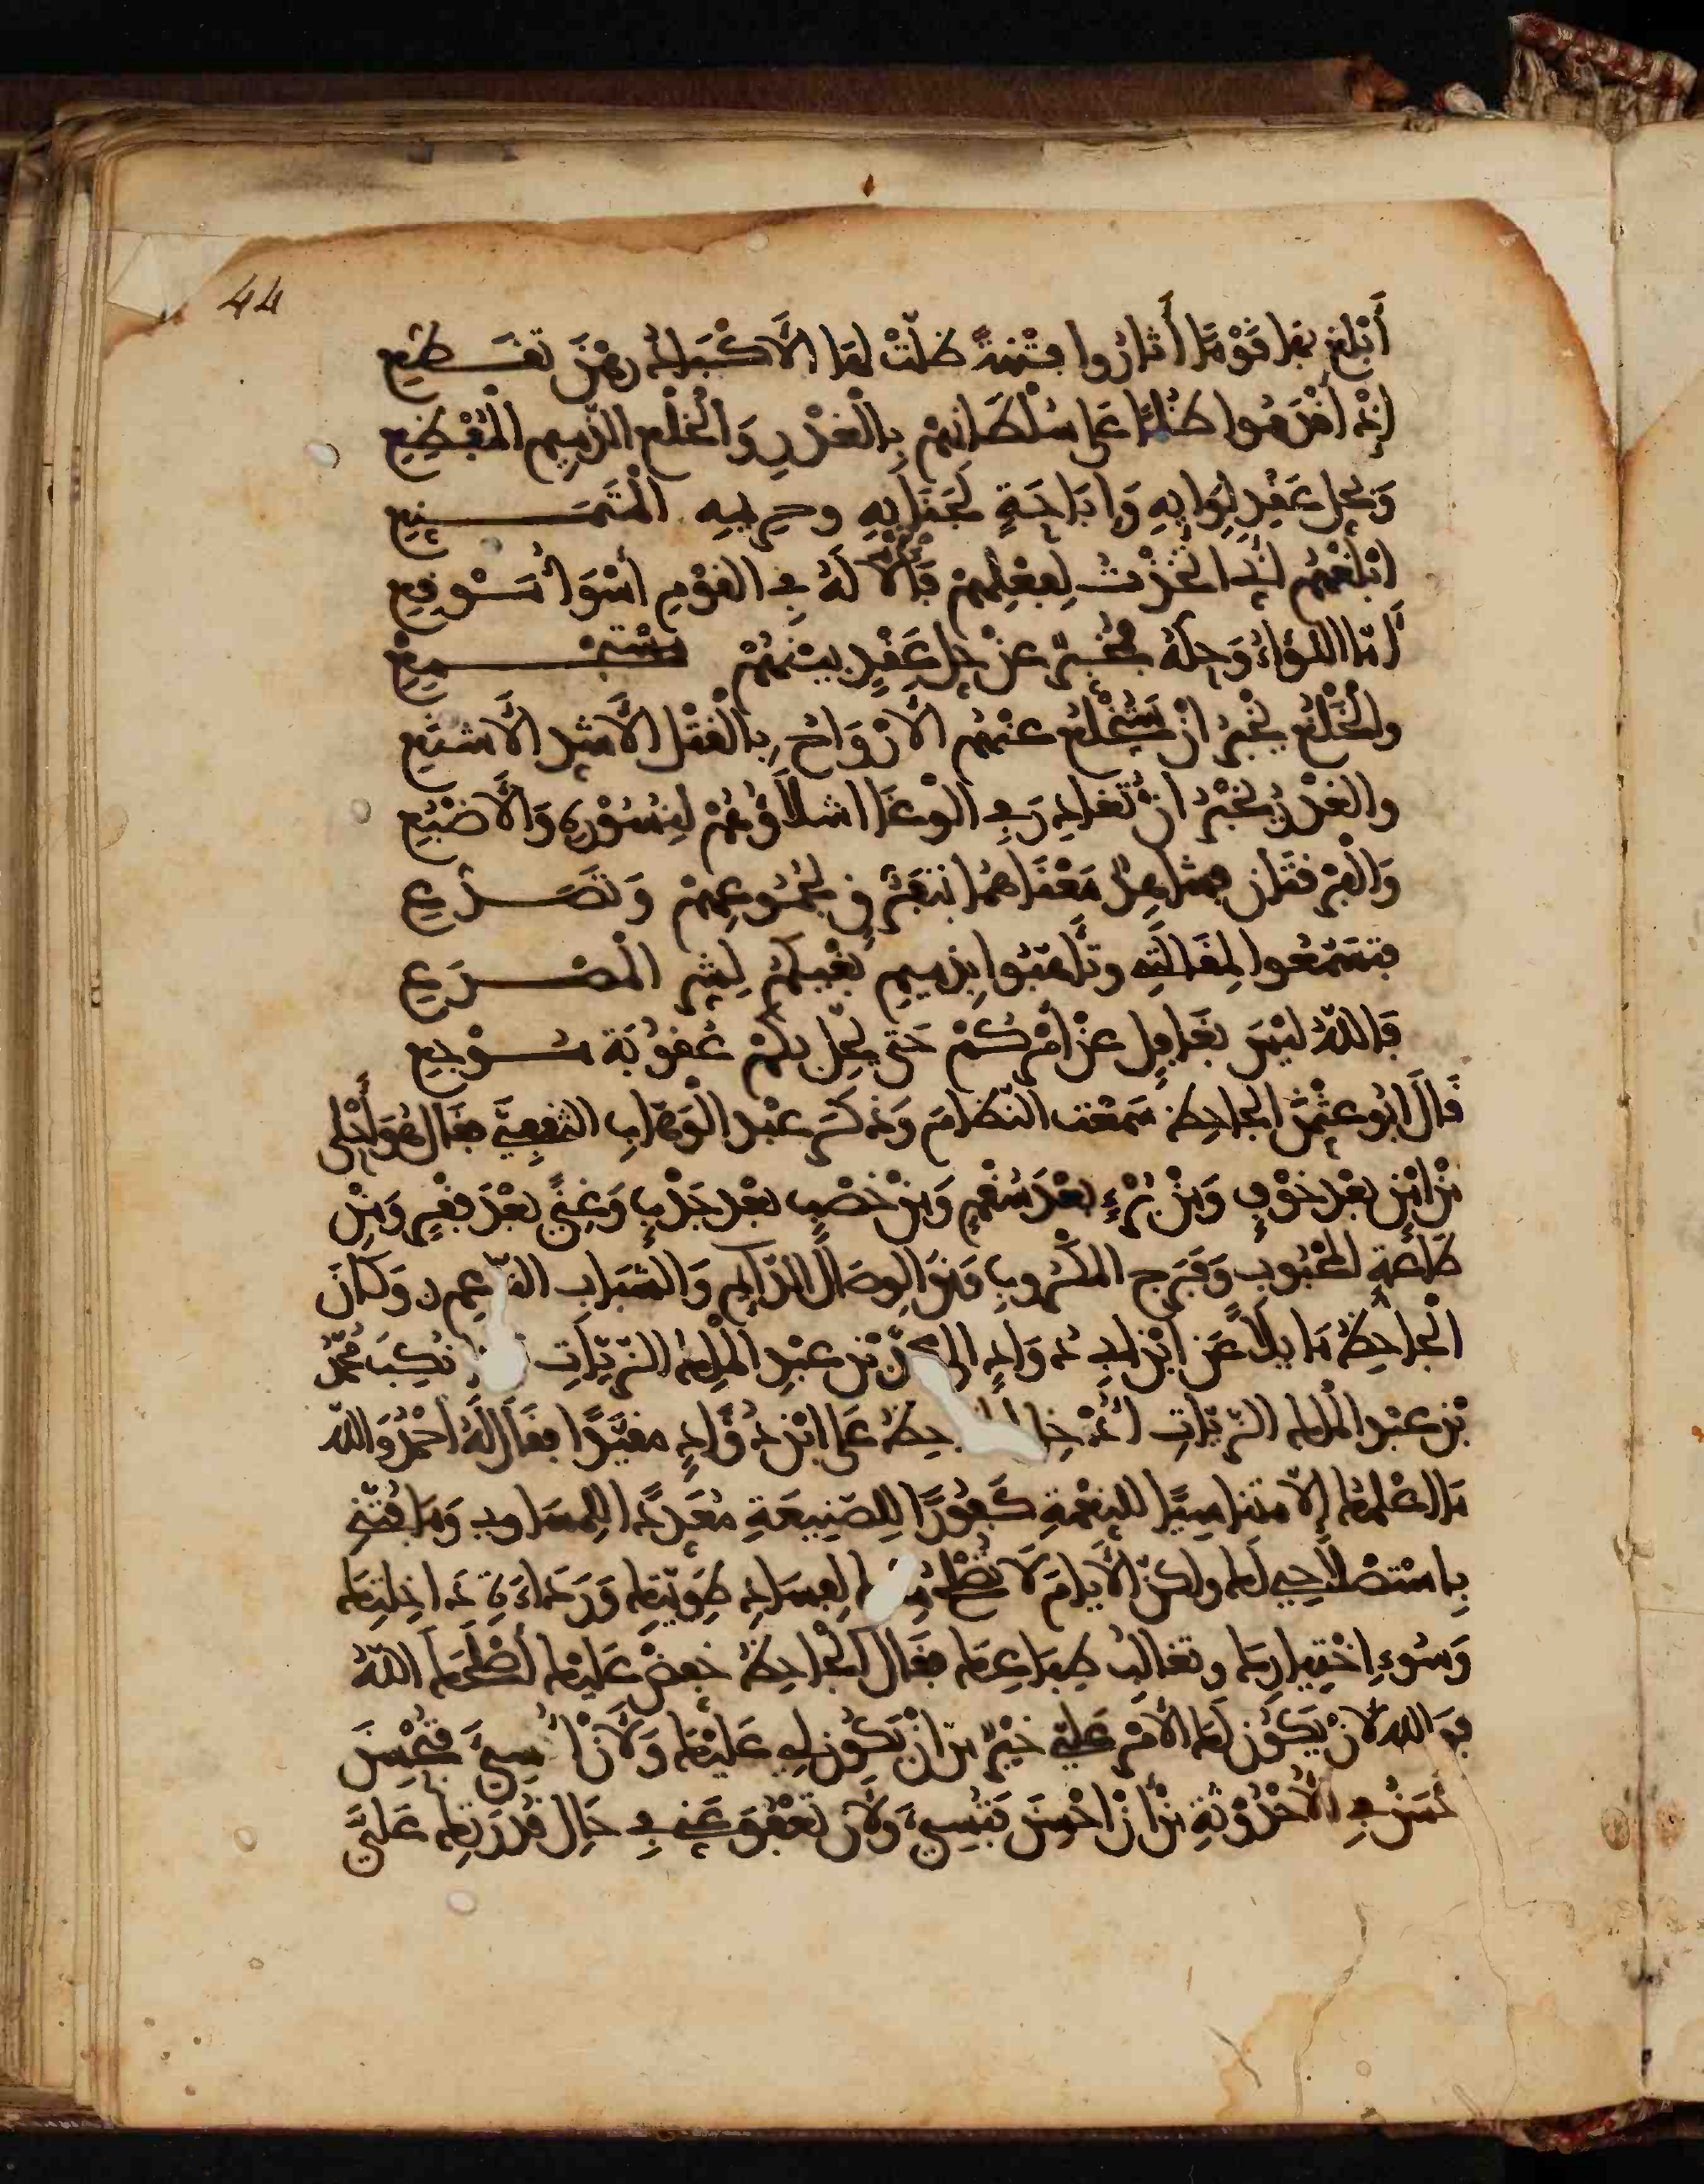 44
أَبْلِغ بها قَوْمًا أَثارُوا فِتْنةً ظلّتْ لها الأكْبادُ رهْنَ تقَطُّعِ
إذْ أقْدمُوا ظُلمًا على سُلْطانِهمْ بالْغدْرِ وَالْخلْعِ الذّميمِ الْمُفْظِعِ
وَبحلِّ عَقْدِ لِوَايِهِ وَإبَاحَةٍ لجَنَابِهِ وحرِيمِهِ الْمُتَمَنِّعِ
أبْلغْهُم أنّي اتّخذْتُ لِفِعْلِهمْ فألًا لَهُ في القوْمِ أسْوَأ مَوْقِعِ
أمّا اللوَاءُ وَحلّهُ مُخْبِرٌ عنْ حلِّ عَقْدٍ بيْنهُمْ مُسْتَجْمِعِ
والْخَلْعُ يخْبرُ أنْ سَتُخْلعُ عنْهُمُ الأرْوَاحُ بالْقتْلِ الأشدِّ الأشنَعِ
والغدْرُ يُخْبرُ أنْ تُغادَرَ في الوَغَا اشلاؤُهُمْ لِنُسُورِهِ وَالأضْبُعِ
وَالْفرْقتانِ فشاهِدٌ مَعْنَاهُما بتفَرُّقٍ لجُمُوعِهِمْ وَتَصَدُّعِ
فتسَمّعُوا لِمَقالَتِي وتأهّبُوا بذميمِ بغْيِكُمُ لِشرِّ الْمصْرَعِ
فَاللهُ ليْسَ بغَافِلٍ عنْ أمْرِكُمْ حَتّى يحُلَّ بِكُمْ عُقُوبَةُ مُوْجِعِ
قَالَ أبُو عثْمنَ الجاحِظ سَمعْت النّظامَ وَذكرَ عبْدَ الْوَهّابِ الثقَفِيَّ فقَالَ هُوَ أحْلَى
منْ أمْنٍ بعْدَ خوْفٍ وَمِنْ بُرْءٍ بعْدَ سُقْمٍ وَمِنْ خصْبٍ بعْدَ جَدْبٍ وَغِنًى بعْدَ فقْرٍ وَمِنْ
طَاعةِ المحْبُوبِ وَفَرَجِ المكْرُوبِ وَمِنَ الوصَالِ الدّايمِ وَالشّبَابِ الناعِم وَكانَ
الْجاحِظُ مَايلًا عَنِ ابْنِ أبي دُوَادٍ إلى محمد بْنِ عبْدِ الْمَلِكِ الزيّاتِ فلما نُكِبَ مُحمّدُ
بْنُ عبْدِ الْمَلِكِ الزّيّاتِ أُدْخِلَ الجاحِظُ عَلى ابْنِ دُؤَادٍ مقيَّدًا فقَالَ لَهُ أحْمدُ وَالله
مَا أعْلمُكَ إلّا متناسِيًا للنِعْمةِ كَفُورًا لِلصّنِيعَةِ مُعَدِّدًا لِلمسَاوِي وَمَا فُتّنِي
بِاسْتصْلاحِي لكَ ولكنّ الأيامَ لَا تُصْلحُ منك لِفسَادِ طوِيّتِكَ وَرَدَاءَةِ دَاخِلتِكَ
وَسُوءِ اخْتِيارِكَ وتغالُبِ طِباعِكَ فقَالَ الْجاحِظُ خفِّضْ عَليْكَ أصْلَحَكَ اللهُ
فوَاللهِ لأنْ يكُونَ لكَ الأمْرُ عَليّ خيْرٌ منْ أنْ يَكُونَ لي عَليْكَ وَلأنْ أُسِيءَ وَتُحْسِنَ
أَحْسَنُ في الأُحْدُوثَةِ منْ أنْ أُحْسِنَ فَتُسِيءَ وَلأنْ تَعْفُوَ عَنّي في حَالِ قُدْرَتِكَ عَليَّ